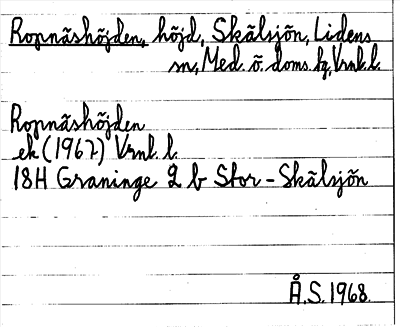 Ropnäshöjden, höjd, Skälsjön, Lidens
sn, Med. ö. doms. hg, Vrnl. l.
Ropnäshöjden
ek (1967) Vrnl. l.
18H Graninge 2 b Stor-Skälsjön
Å.S. 1968.